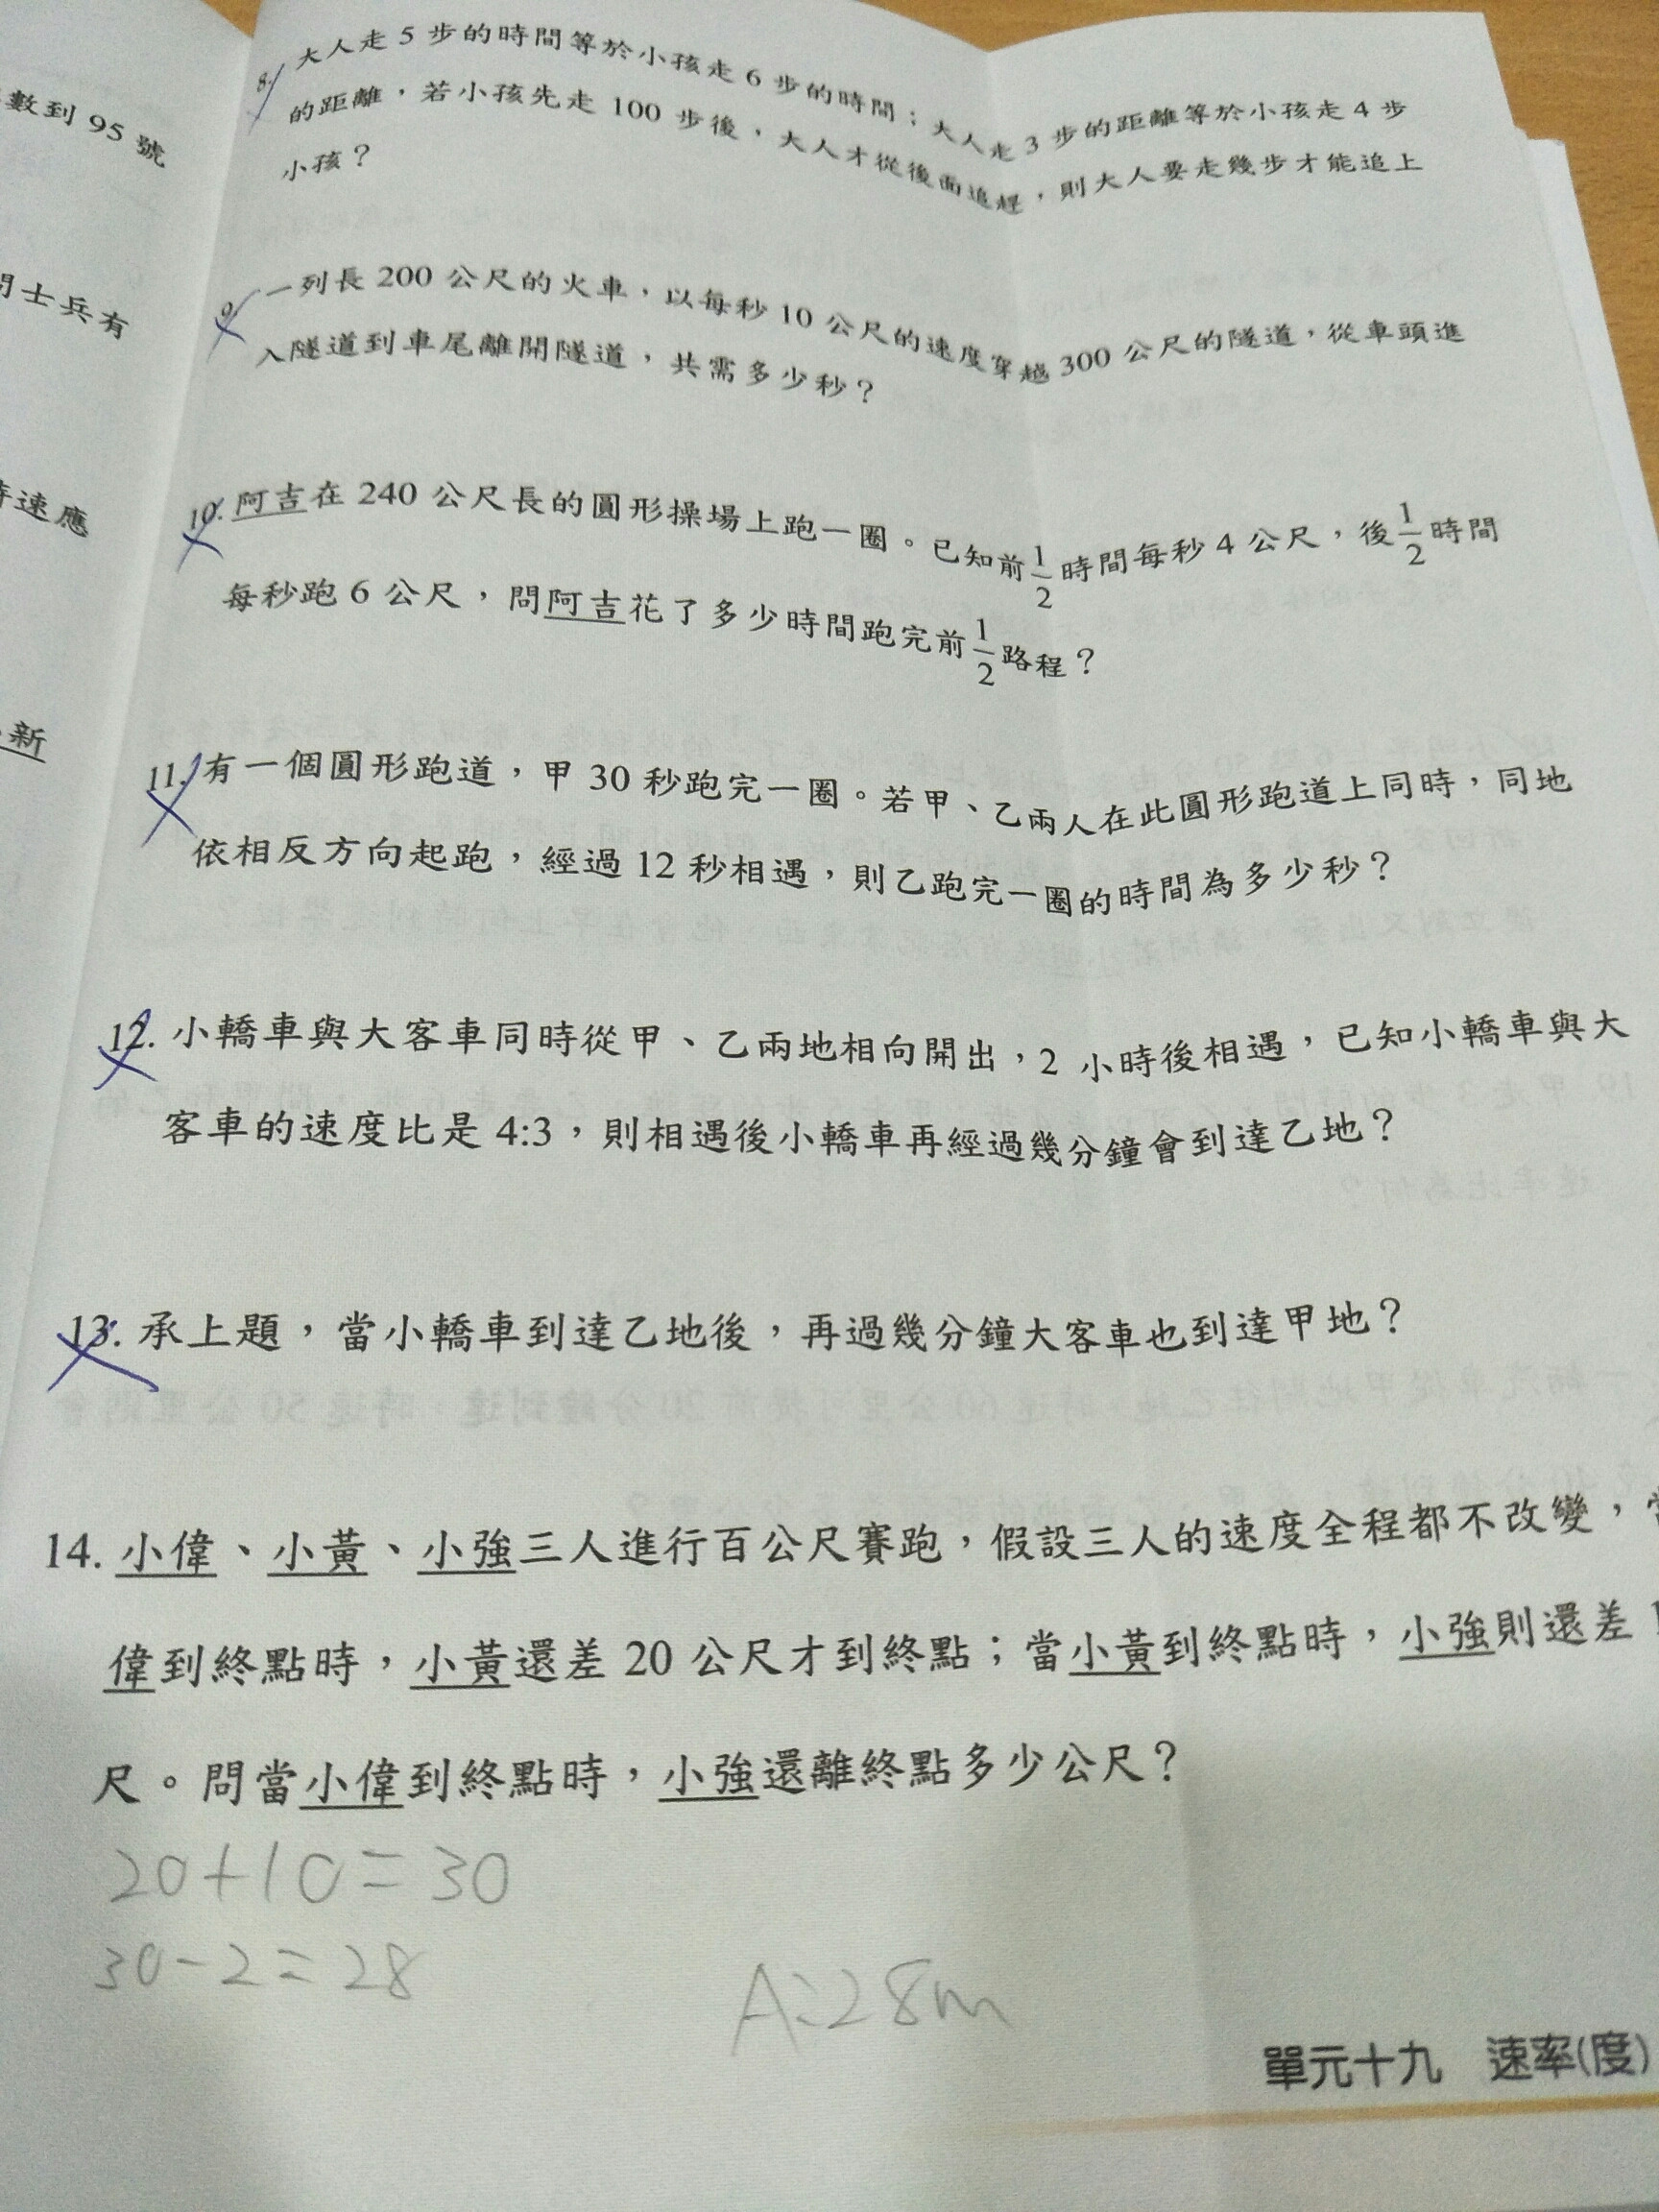 數到 95 號
士兵有
速應
新
8. 大人走 5 步的時間等於小孩走 6 步的時間；大人走 3 步的距離等於小孩走 4 步
的距離，若小孩先走 100 步後，大人才從後面追趕，則大人要走幾步才能追上
小孩？
9. 一列長 200 公尺的火車，以每秒 10 公尺的速度穿越 300 公尺的隧道，從車頭進
入隧道到車尾離開隧道，共需多少秒？
10. 阿吉在 240 公尺長的圓形操場上跑一圈。已知前 1/2 時間每秒 4 公尺，後 1/2 時間
每秒跑 6 公尺，問阿吉花了多少時間跑完前 1/2 路程？
11. 有一個圓形跑道，甲 30 秒跑完一圈。若甲、乙兩人在此圓形跑道上同時，同地
依相反方向起跑，經過 12 秒相遇，則乙跑完一圈的時間為多少秒？
12. 小轎車與大客車同時從甲、乙兩地相向開出，2 小時後相遇，已知小轎車與大
客車的速度比是 4:3，則相遇後小轎車再經過幾分鐘會到達乙地？
13. 承上題，當小轎車到達乙地後，再過幾分鐘大客車也到達甲地？
14. 小偉、小黃、小強三人進行百公尺賽跑，假設三人的速度全程都不改變，
偉到終點時，小黃還差 20 公尺才到終點；當小黃到終點時，小強則還差
尺。問當小偉到終點時，小強還離終點多少公尺？
20+10=30
30-2=28
A:28m
單元十九 速率(度)